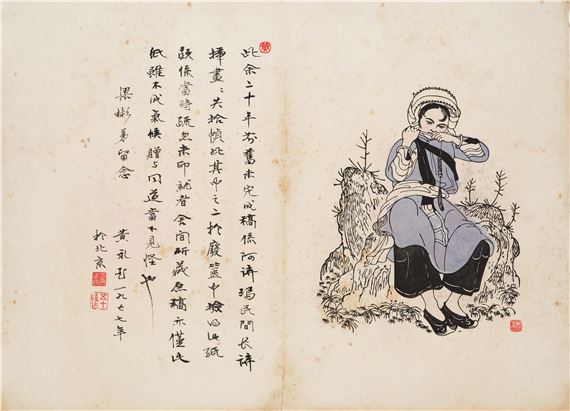 此余二十年前舊未完成稿係阿詩瑪民間長詩
插畫共拾幀此其中之於廢簍中撿回此紙
顯係當時疏忽未印就者舍間所藏原稿亦僅此
低雖不成氣候贈与同道當不見怪也
梁彬弟留念
黄永玉一九七七年
於北京